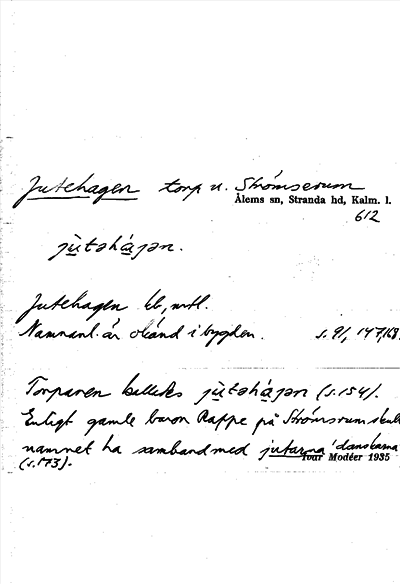 Jutehagen torp u. Strömserum
Ålems sn, Stranda hd, Kalm. l.
612
jù̱təhá̱jən.
Jutehagen lb, mtl.
Namnanl. är okänd i bygden. s. 91, 147, 168.
Torparen kallades jù̱təhá̱jən (s. 154).
Enligt gamle baron Rappe på Strömsrum skull
namnet ha samband med jutarna 'danskarna
(s. 173).
Ivar Modéer 1935